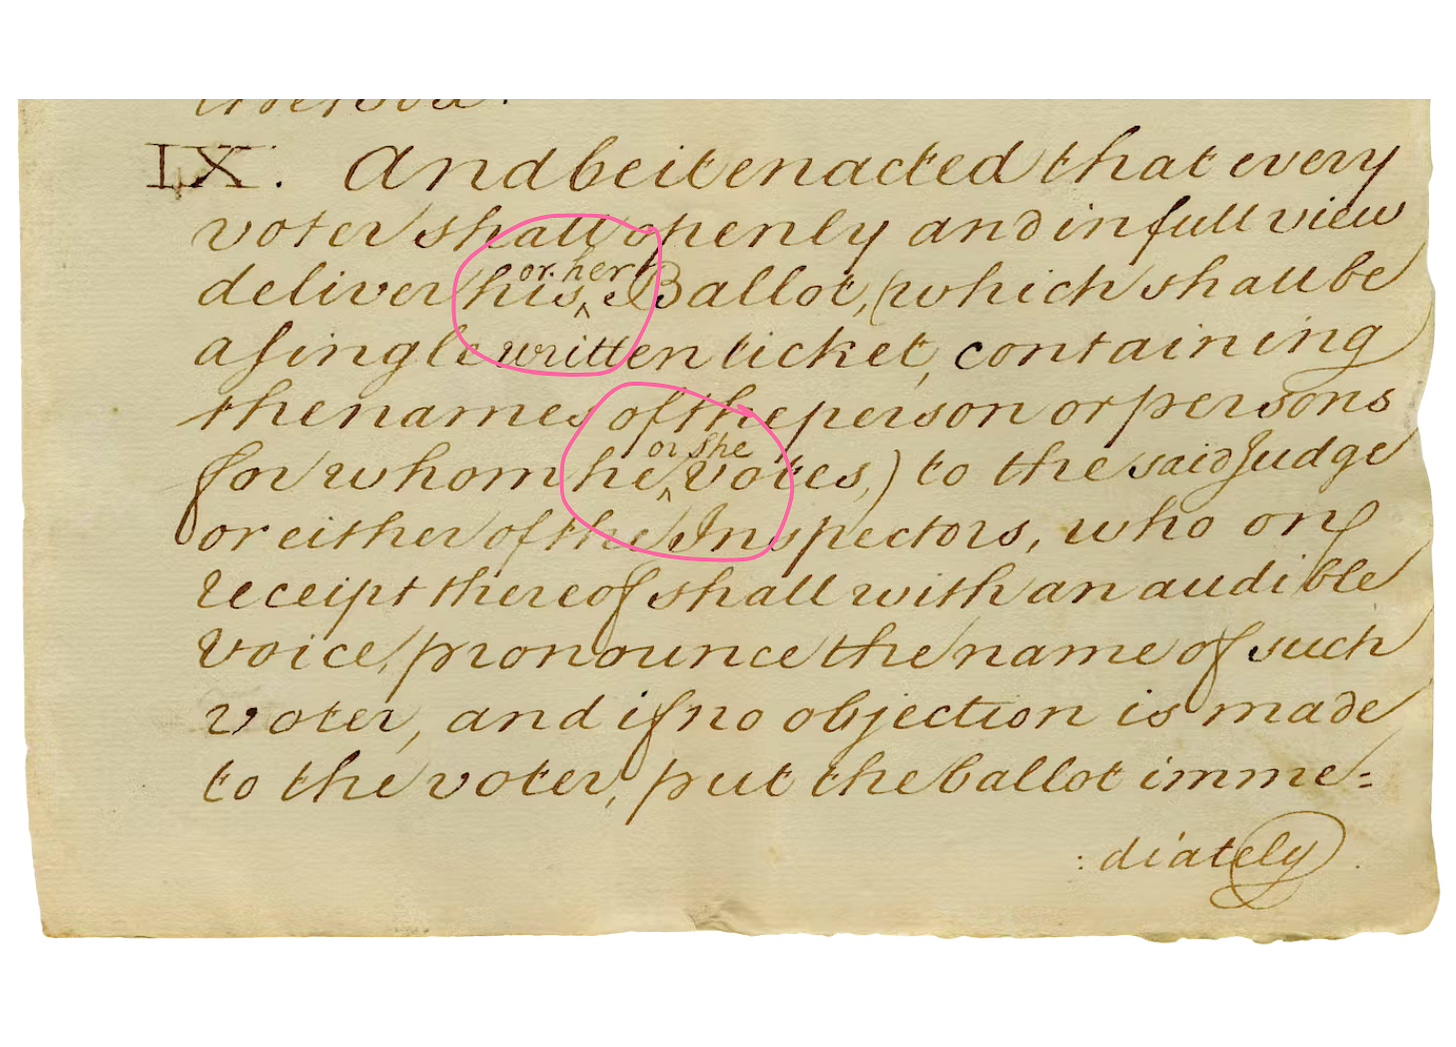 IX. And be it enacted that every
voter shall openly and in full view
deliver his ^ or her Ballot, (which shall be
a single written ticket, containing
the names of the person or persons
for whom he ^ or she votes,) to the said Judge
or either of the Inspectors, who on
receipt thereof shall with an audible
voice, pronounce the name of such
voter, and if no objection is made
to the voter, put the ballot imme=
:diately